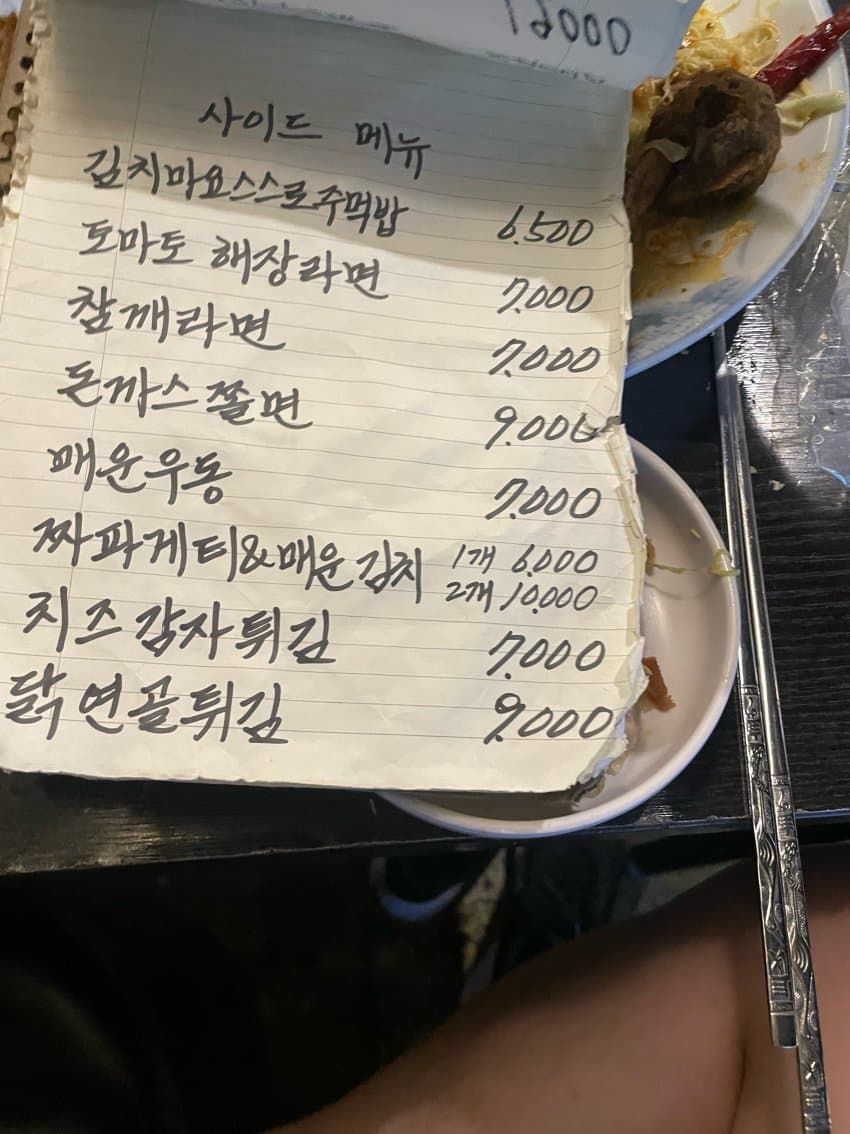 12000
사이드 메뉴
김치마요스스로주먹밥 6.500
토마토 해장라면 7.000
참깨라면 7.000
돈까스쫄면 9.000
매운우동 7.000
짜파게티&매운김치 1개 6.000
2개 10.000
치즈감자튀김 7.000
닭연골튀김 9.000